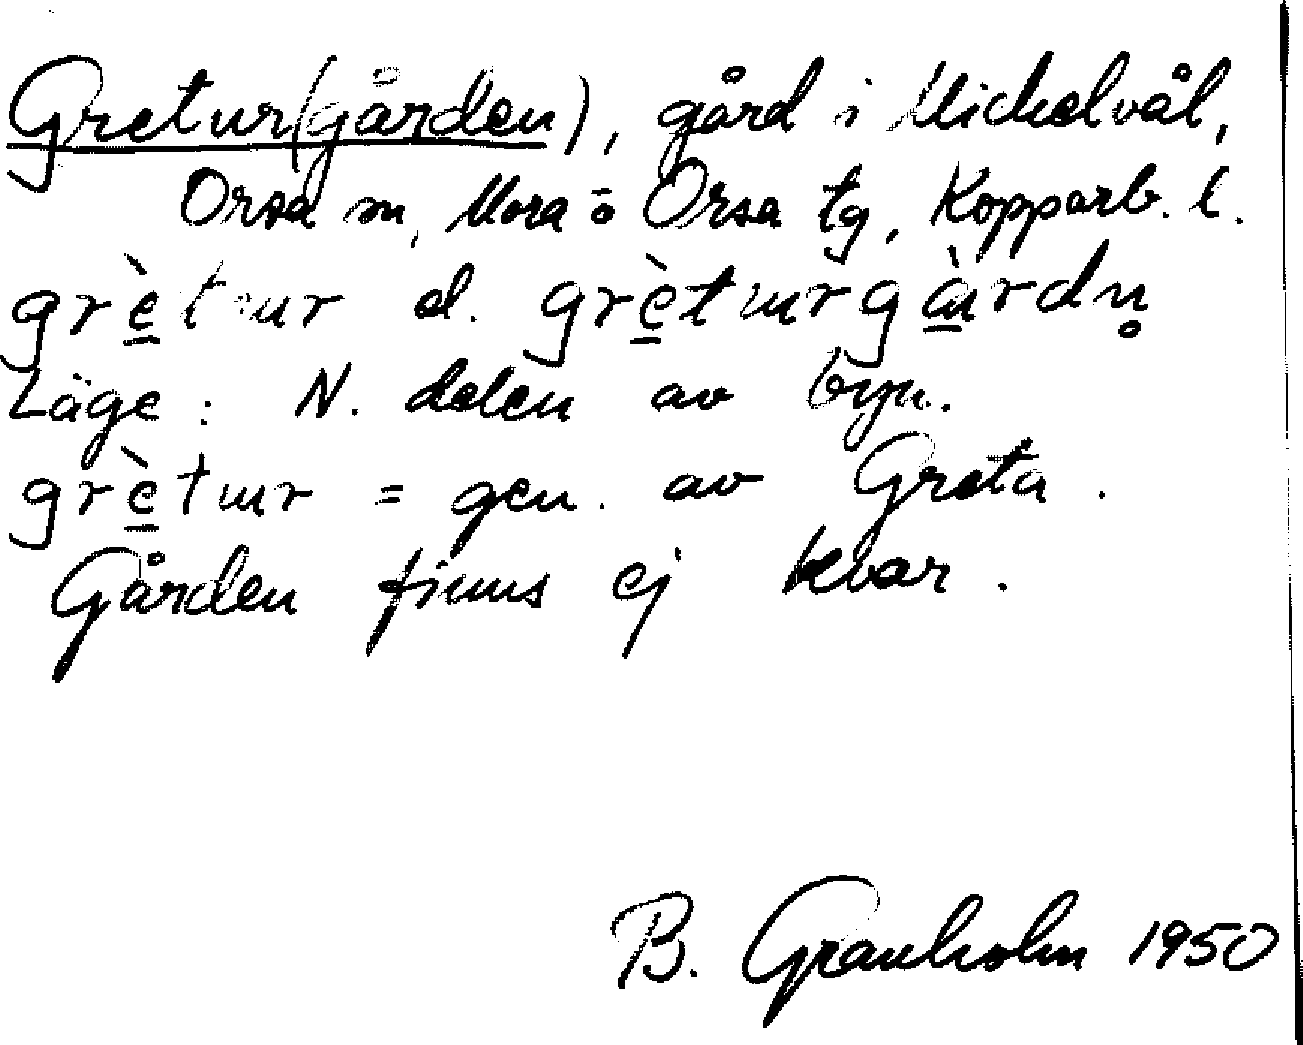 Gretur(gården), gård i Mickelvål,
Orsa sn, Mora o Orsa tg, Kopparb. l.
grètur el. grèturgàrdn̥
Läge: N. delen av byn.
grètur = gen. av Greta.
Gården finns ej kvar.
B. Granholm 1950